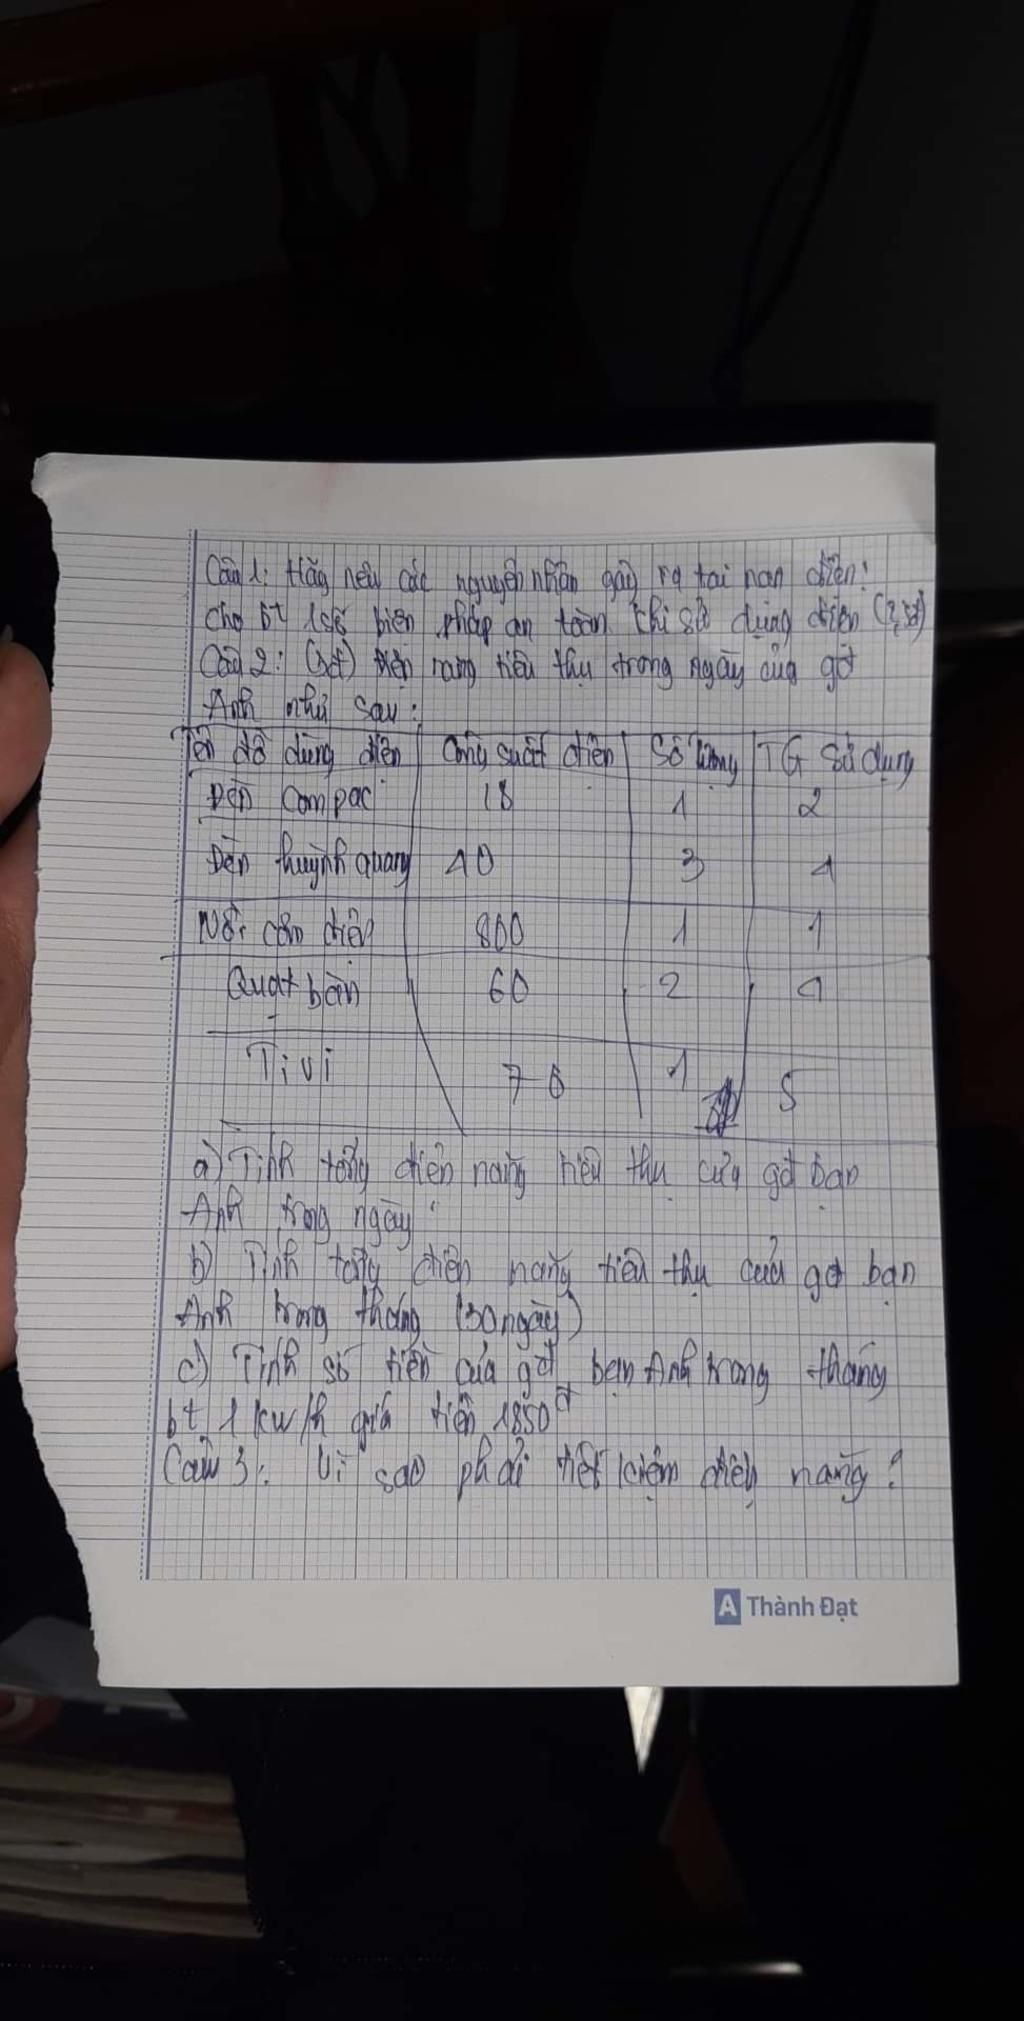 Câu 1: Hãy nêu các nguyên nhân gây ra tai nạn điện!
Cho bt 1 số biện pháp an toàn khi sử dụng điện
Câu 2: điện năng tiêu thụ trong ngày của gđ
Anh như sau:
Tên đồ dùng điện Công suất điện Số lượng TG sử dụng
Đèn compac 18 1 2
Đèn huỳnh quang 40 3 4
Nồi cơm điện 800 1 1
Quạt bàn 60 2 4
Ti vi 70 1 5
a) Tính tổng điện năng tiêu thụ của gđ bạn
Anh trong ngày
b) Tính tổng điện năng tiêu thụ của gđ bạn
Anh trong tháng (30 ngày)
c) Tính số tiền của gđ bạn Anh trong tháng
bt 1 kw/h giá tiền 1850đ
Câu 3: Vì sao phải tiết kiệm điện năng?
A Thành Đạt